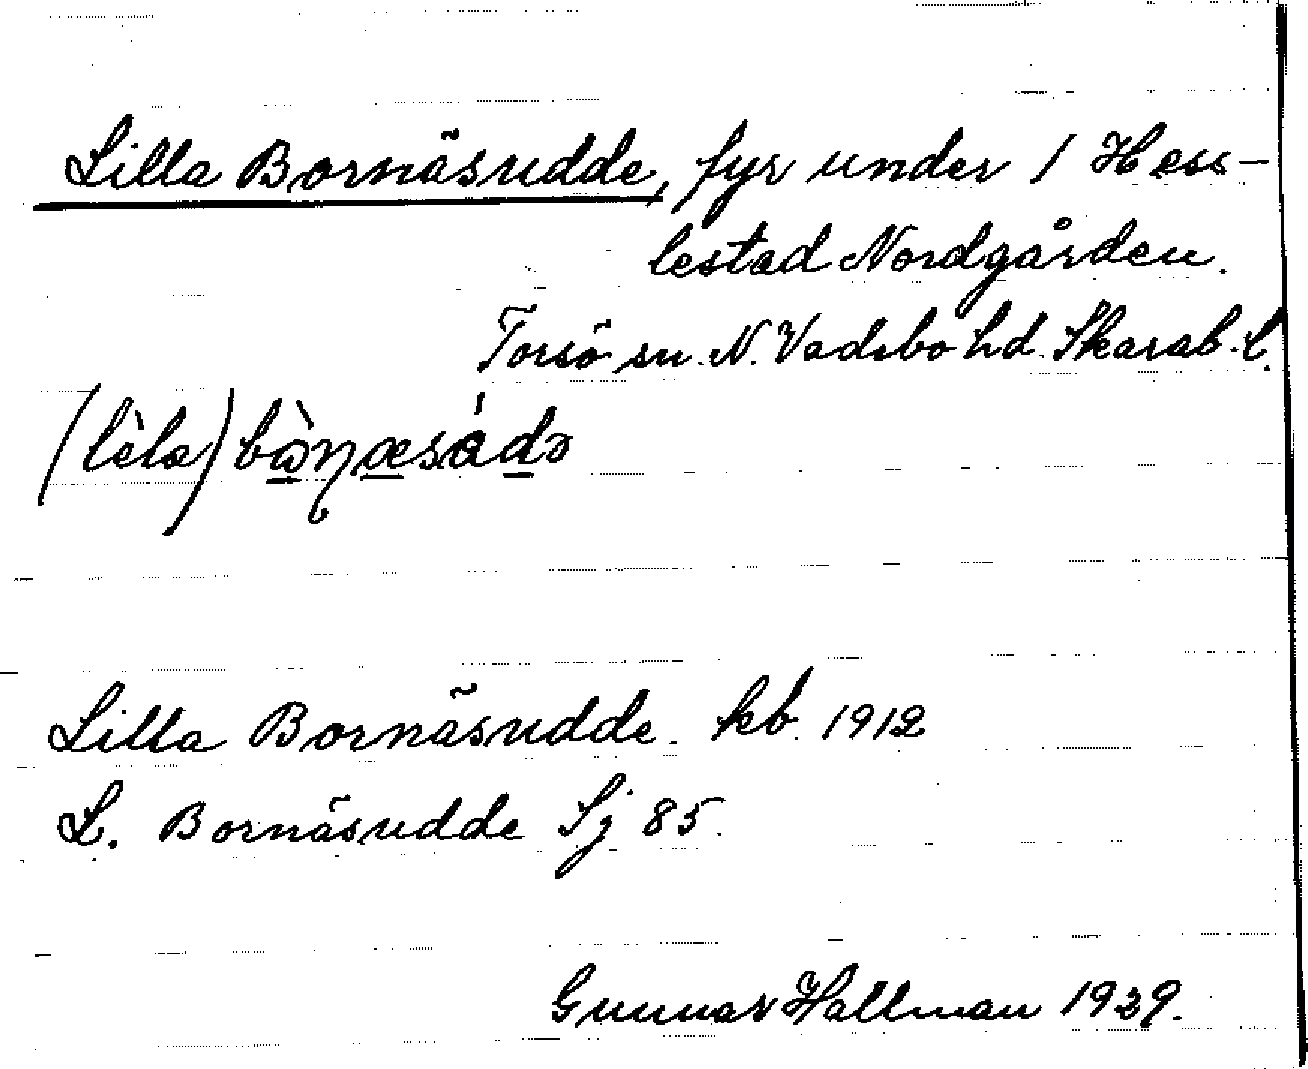 Lilla Bornäsudde, fyr under 1 Hess-
lestad Nordgården.
Torsö sn. N. Vadsbo hd. Skarab. l.
(lèla) bὼŋæsádə
Lilla Bornäsudde. kb. 1912
L. Bornäsudde Sj 85.
Gunnar Hallman 1929.